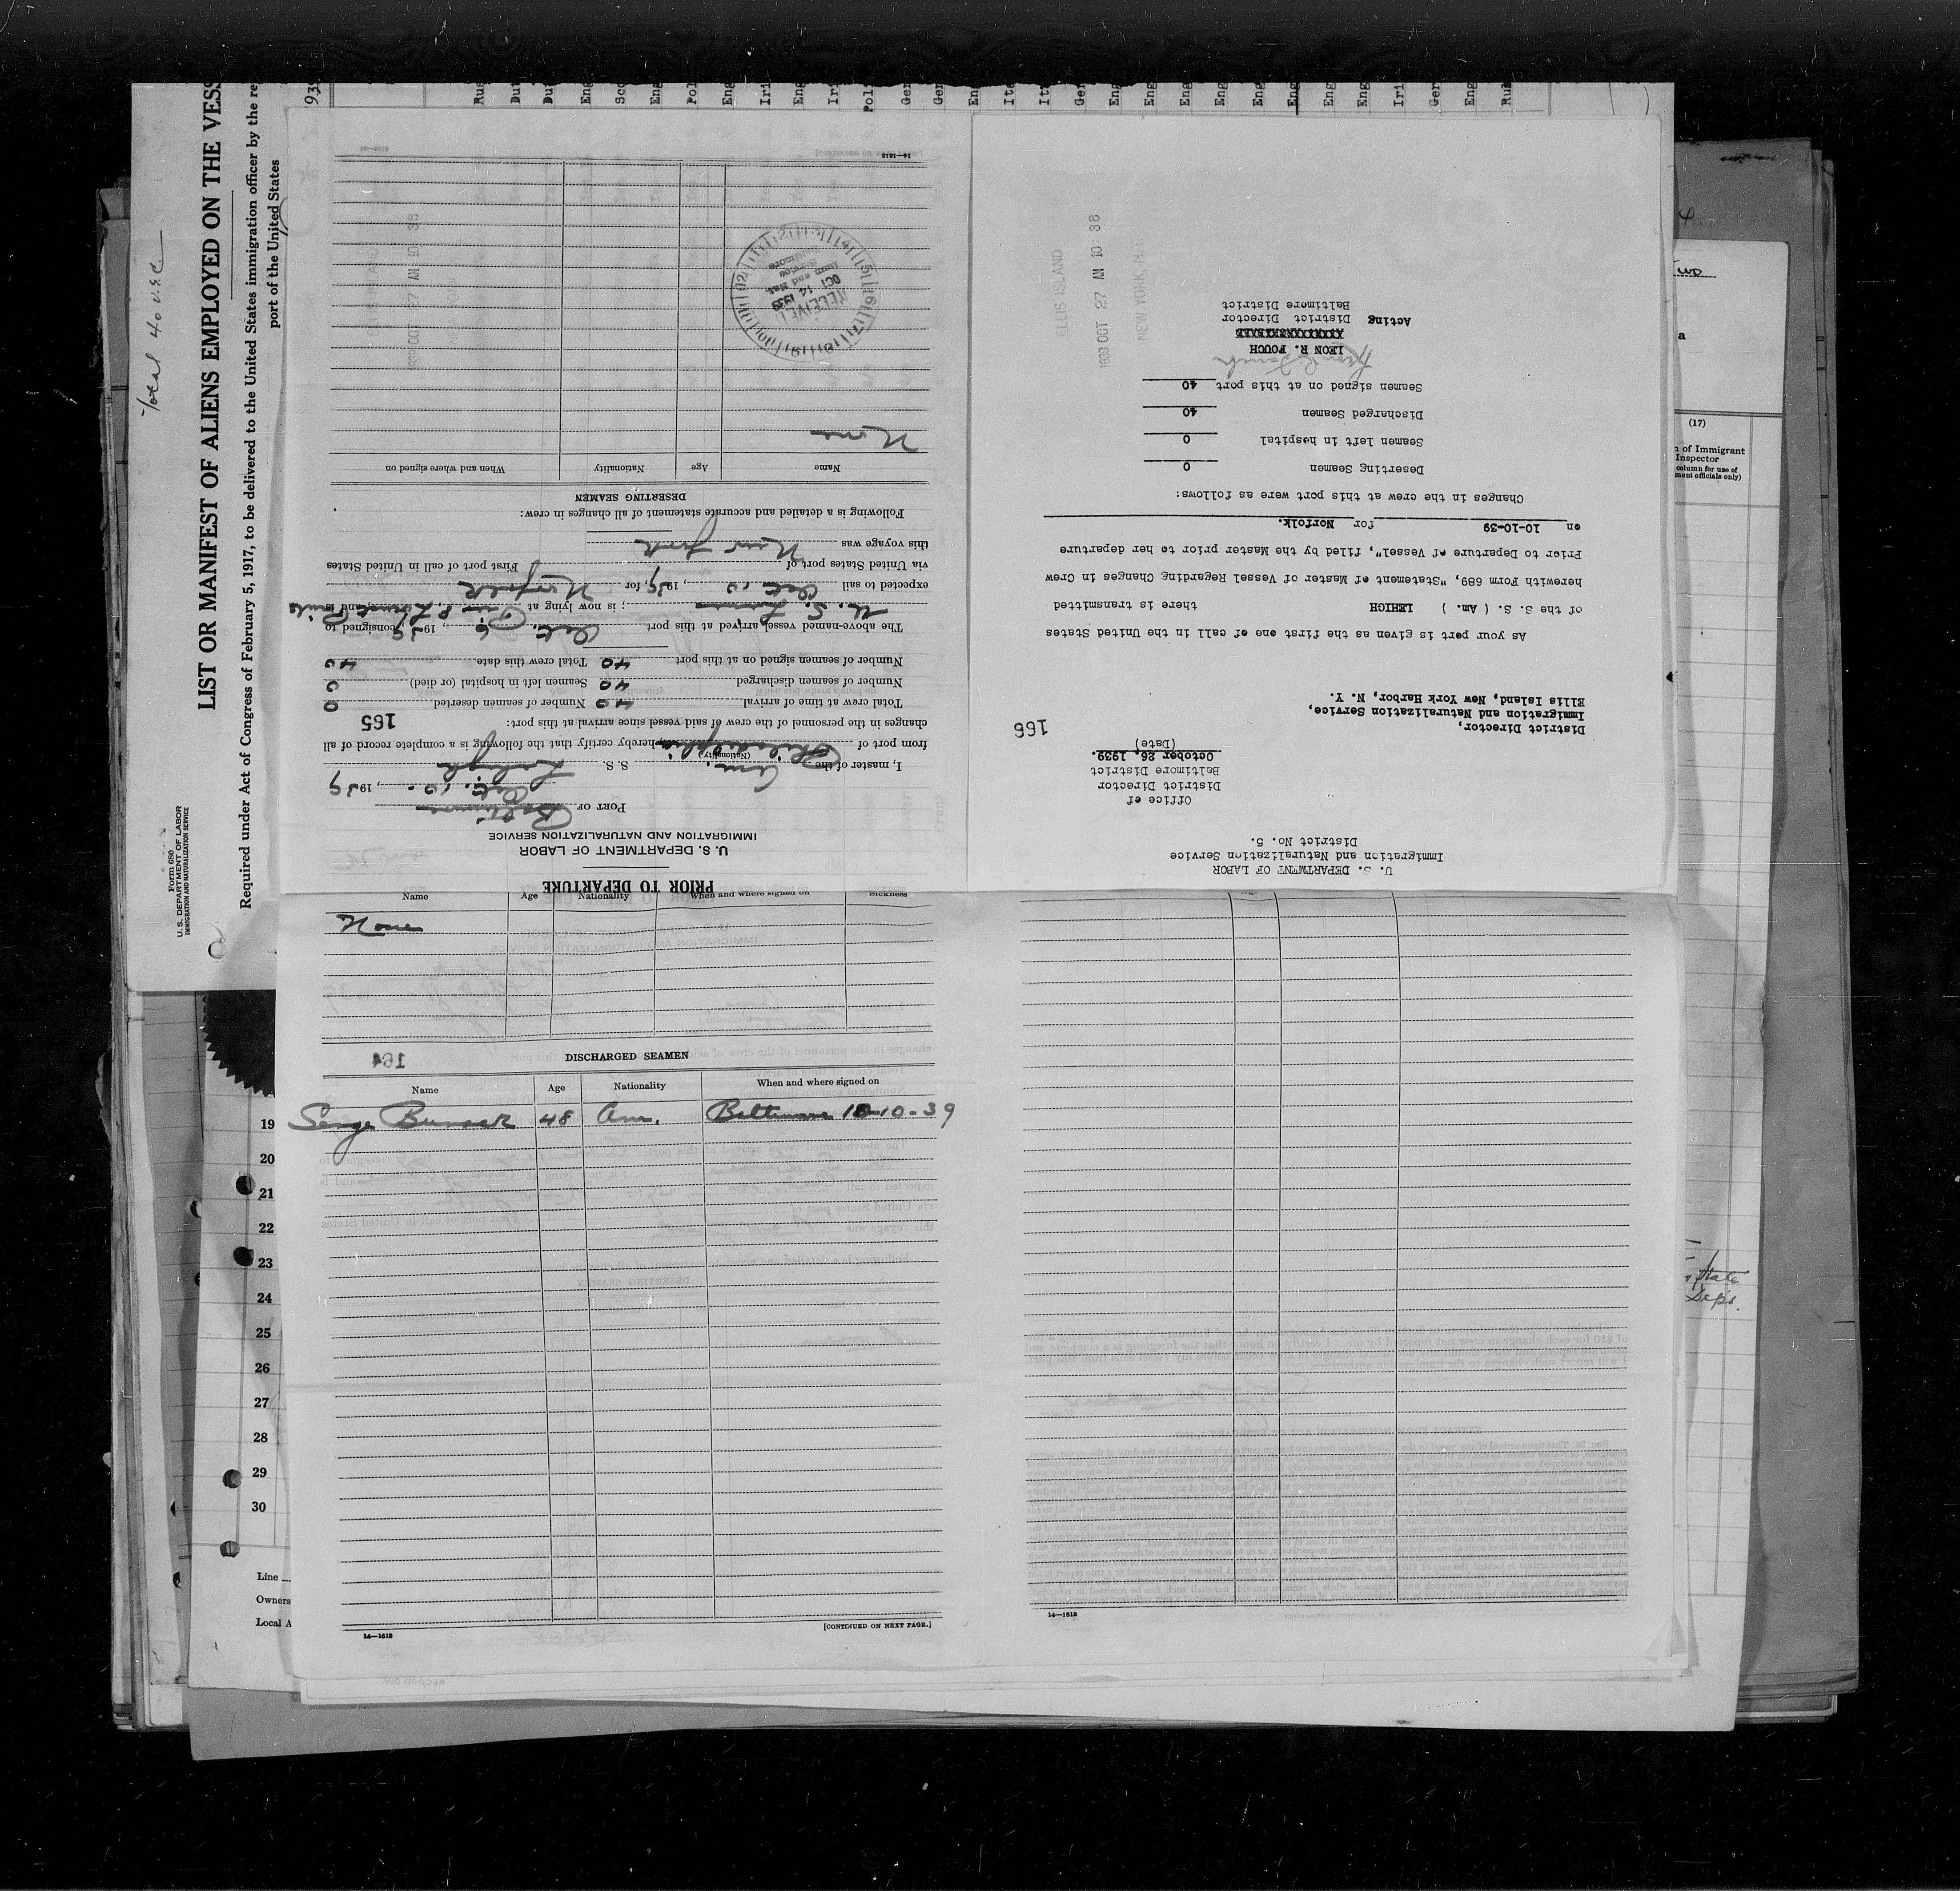 Total 40 U.S.C.
Form 680
U. S. DEPARTMENT OF LABOR
IMMIGRATION AND NATURALIZATION SERVICE
LIST OR MANIFEST OF ALIENS EMPLOYED ON THE VESS
Required under Act of Congress of February 5, 1917, to be delivered to the United States immigration officer by the re
port of the United States
PRIOR TO DEPARTURE
U. S. DEPARTMENT OF LABOR
IMMIGRATION AND NATURALIZATION SERVICE
PORT OF Baltimore
Oct. 10, 1939
I, master of the Am. S. S. Lehigh
(Nationality)
from port of Philadelphia, hereby certify that the following is a complete record of all
changes in the personnel of the crew of said vessel since arrival at this port: 165
Total crew at time of arrival 40 Number of seamen deserted 0
Number of seamen discharged 40 Seamen left in hospital (or died) 0
Number of seamen signed on at this port 40 Total crew this date 40
The above-named vessel arrived at this port Oct. 6, 1939, consigned to
U. S. Lines; is now lying at Pier and is
expected to sail Oct. 10, 1939, for Norfolk
via United States port of First port of call in United States
this voyage was New York
Following is a detailed and accurate statement of all changes in crew:
DESERTING SEAMEN
Name Age Nationality When and where signed on
None
RECEIVED
OCT 14 1939
Imm and Nat.
Service
Baltimore
14—1613
U. S. DEPARTMENT OF LABOR
Immigration and Naturalization Service
District No. 5.
Office of
District Director
Baltimore District
October 26, 1939.
(Date)
166
District Director,
Immigration and Naturalization Service,
Ellis Island, New York Harbor, N. Y.
As your port is given as the first one of call in the United States
of the S. S. ( Am. ) LEHIGH there is transmitted
herewith Form 689, "Statement of Master of Vessel Regarding Changes in Crew
Prior to Departure of Vessel", filed by the Master prior to her departure
on 10-10-39 for Norfolk.
Changes in the crew at this port were as follows:
Deserting Seamen 0
Seamen left in hospital 0
Discharged Seamen 40
Seamen signed on at this port 40
LEON R. FOUCH
Acting District Director
Baltimore District
ELLIS ISLAND
1939 OCT 27 AM 10 38
NEW YORK, N.Y.
Name Age Nationality When and where signed on Sickness
None
164
DISCHARGED SEAMEN
Name Age Nationality When and where signed on
48 Am. Baltimore 10-10-39
[CONTINUED ON NEXT PAGE.]
14—1613
14—1613
19
20
21
22
23
24
25
26
27
28
29
30
Line
Owners
Local A
(17)
n of Immigrant
Inspector
column for use of
ment officials only)
State
Dept.